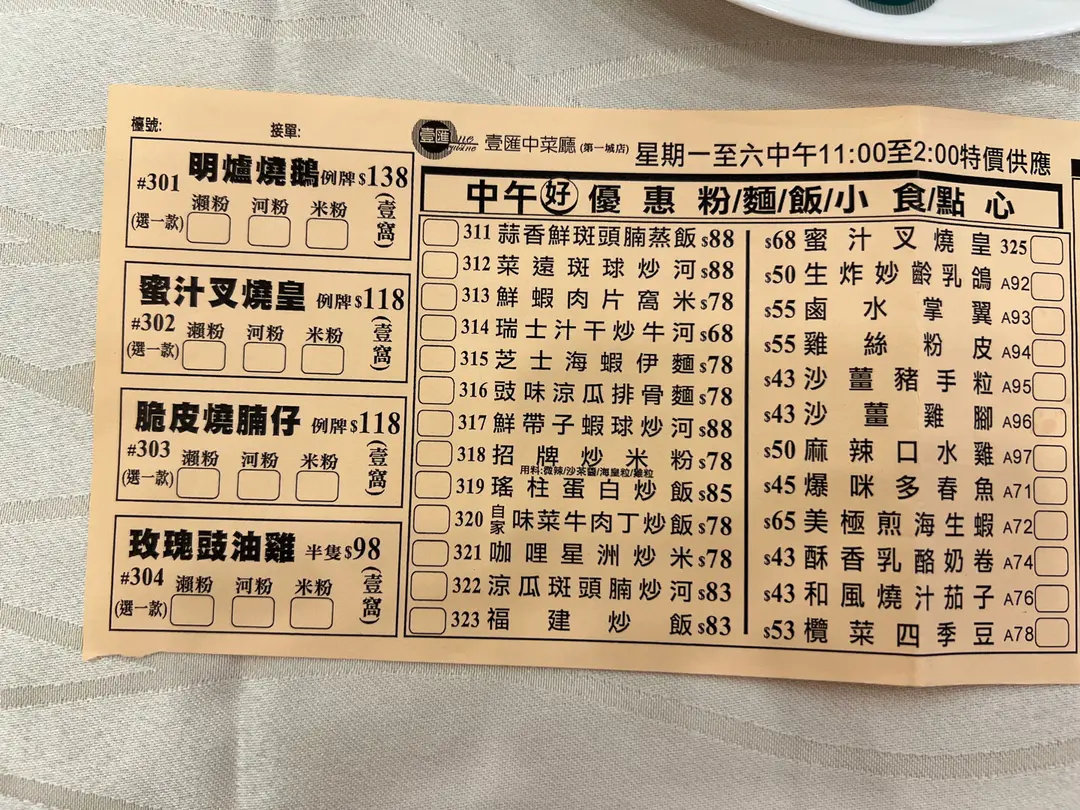 檯號: 接單:
#301 明爐燒鵝 例牌$138
(選一款) 瀨粉 河粉 米粉 (壹窩)
蜜汁叉燒皇 例牌$118
#302 瀨粉 河粉 米粉
(選一款) (壹窩)
脆皮燒腩仔 例牌$118
#303 瀨粉 河粉 米粉
(選一款) (壹窩)
玫瑰豉油雞 半隻$98
#304 瀨粉 河粉 米粉
(選一款) (壹窩)
壹匯 壹匯中菜廳(第一城店) 星期一至六中午11:00至2:00特價供應
中午好優惠 粉/麵/飯/小食/點心
311 蒜香鮮斑頭腩蒸飯 $88
312 菜遠斑球炒河 $88
313 鮮蝦肉片窩米 $78
314 瑞士汁干炒牛河 $68
315 芝士海蝦伊麵 $78
316 豉味涼瓜排骨麵 $78
317 鮮帶子蝦球炒河 $88
318 招牌炒米粉 $78
用料:微辣/沙茶醬/海皇粒/雞粒
319 瑤柱蛋白炒飯 $85
320 自家味菜牛肉丁炒飯 $78
321 咖哩星洲炒米 $78
322 涼瓜斑頭腩炒河 $83
323 福建炒飯 $83
$68 蜜汁叉燒皇 325
$50 生炸妙齡乳鴿 A92
$55 鹵水掌翼 A93
$55 雞絲粉皮 A94
$43 沙薑豬手粒 A95
$43 沙薑雞腳 A96
$50 麻辣口水雞 A97
$45 爆咪多春魚 A71
$65 美極煎海生蝦 A72
$43 酥香乳酪奶卷 A74
$43 和風燒汁茄子 A76
$53 欖菜四季豆 A78